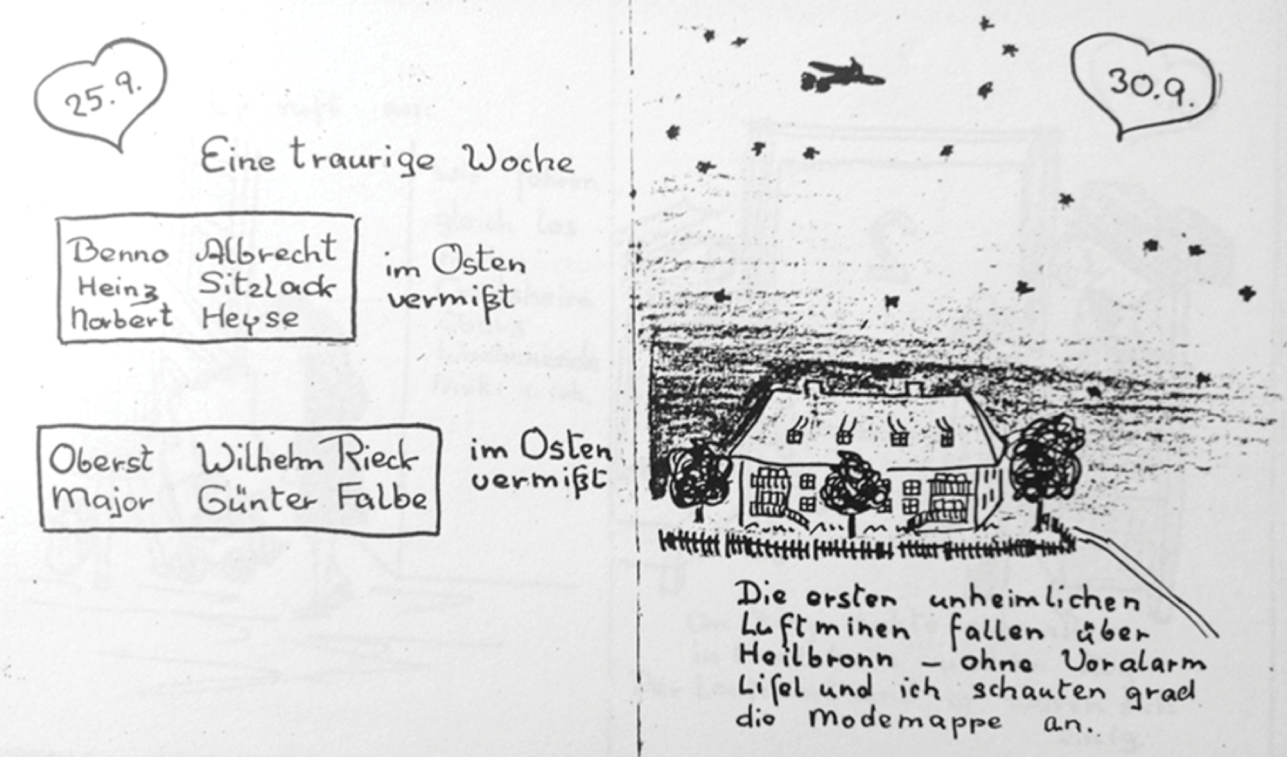 25.9.
Eine traurige Woche
Benno Albrecht
Heinz Sitzlack
Norbert Heyse
im Osten
vermißt
Oberst Wilhelm Rieck
Major Günter Falbe
im Osten
vermißt
30.9.
Die ersten unheimlichen
Luftminen fallen über
Heilbronn – ohne Voralarm
Liſel und ich schauten grad
die Modemappe an.